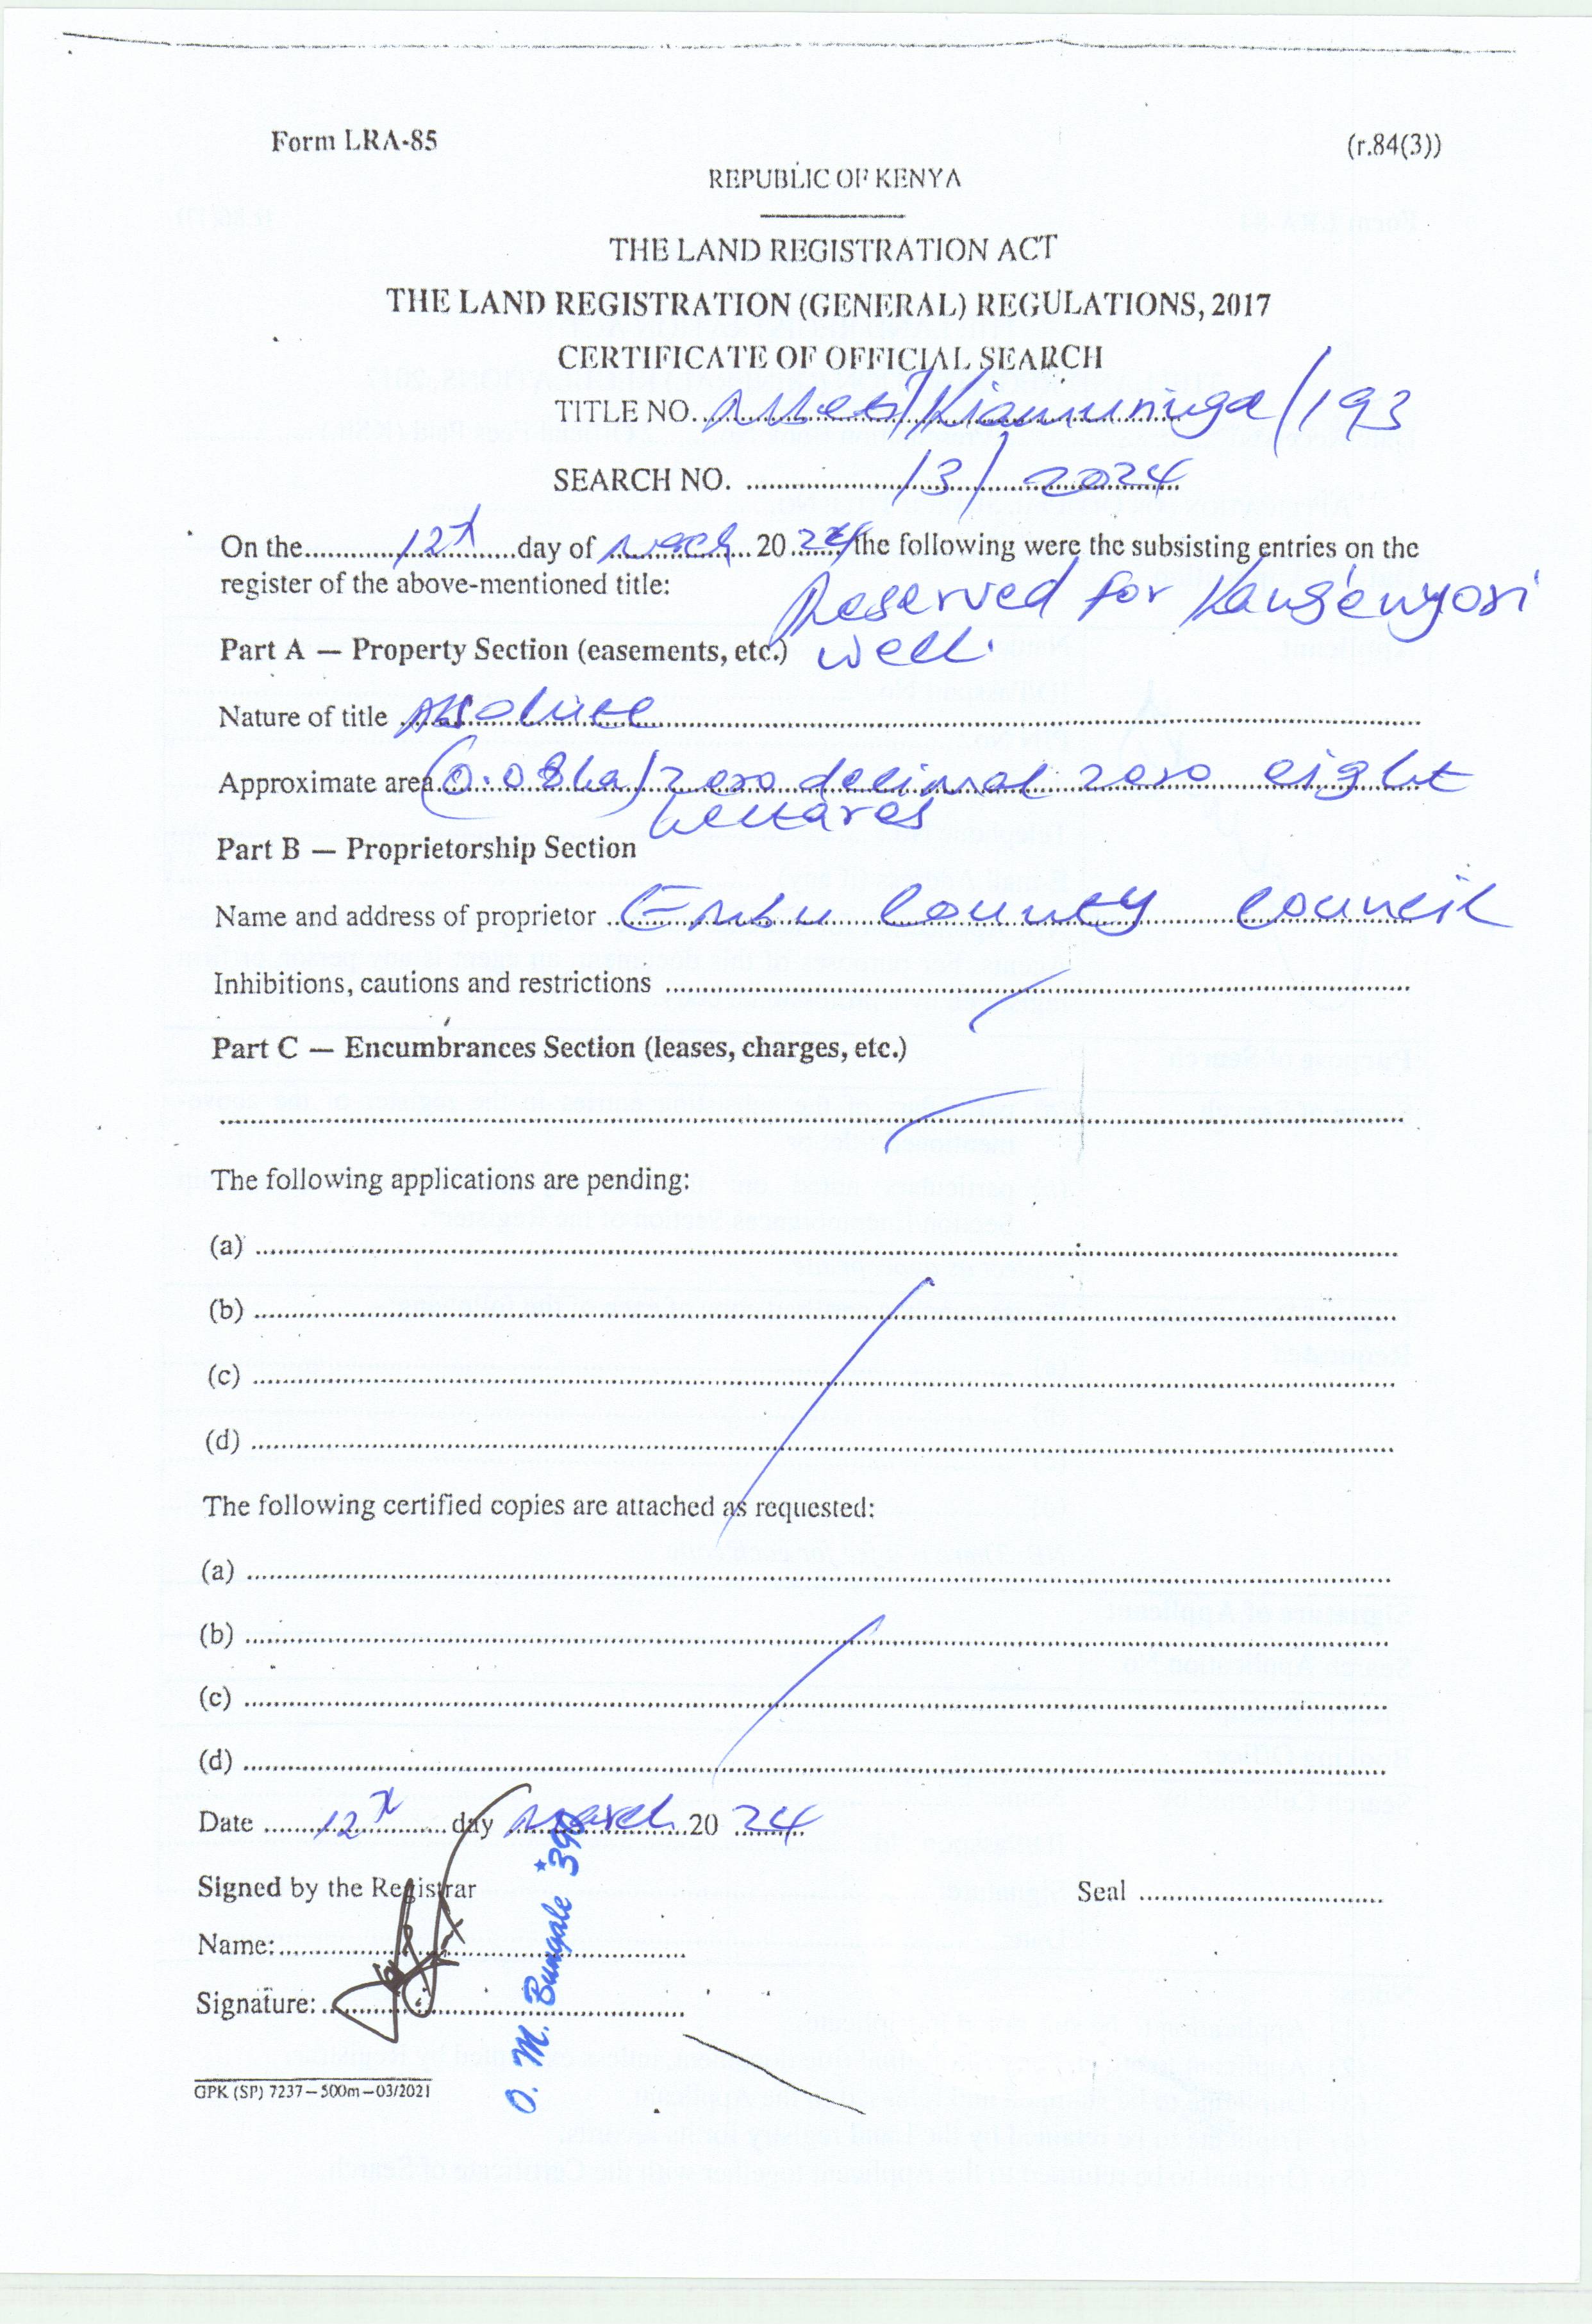 Form LRA-85 (r.84(3))
REPUBLIC OF KENYA
THE LAND REGISTRATION ACT
THE LAND REGISTRATION (GENERAL) REGULATIONS, 2017
CERTIFICATE OF OFFICIAL SEARCH
TITLE NO. /Kiamuringa/193
SEARCH NO. /3/2024
On the 12th day of March 2024 the following were the subsisting entries on the
register of the above-mentioned title:
Reserved for
Part A — Property Section (easements, etc.) well.
Nature of title Absolute
Approximate area (0.08ha) zero decimal zero eight
hectares
Part B — Proprietorship Section
Name and address of proprietor Embu County Council
Inhibitions, cautions and restrictions
Part C — Encumbrances Section (leases, charges, etc.)
The following applications are pending:
(a)
(b)
(c)
(d)
The following certified copies are attached as requested:
(a)
(b)
(c)
(d)
Date 12th day March 2024
Signed by the Registrar Seal
Name:
Signature:
O. M. Bungale *39
GPK (SP) 7237—500m—03/2021